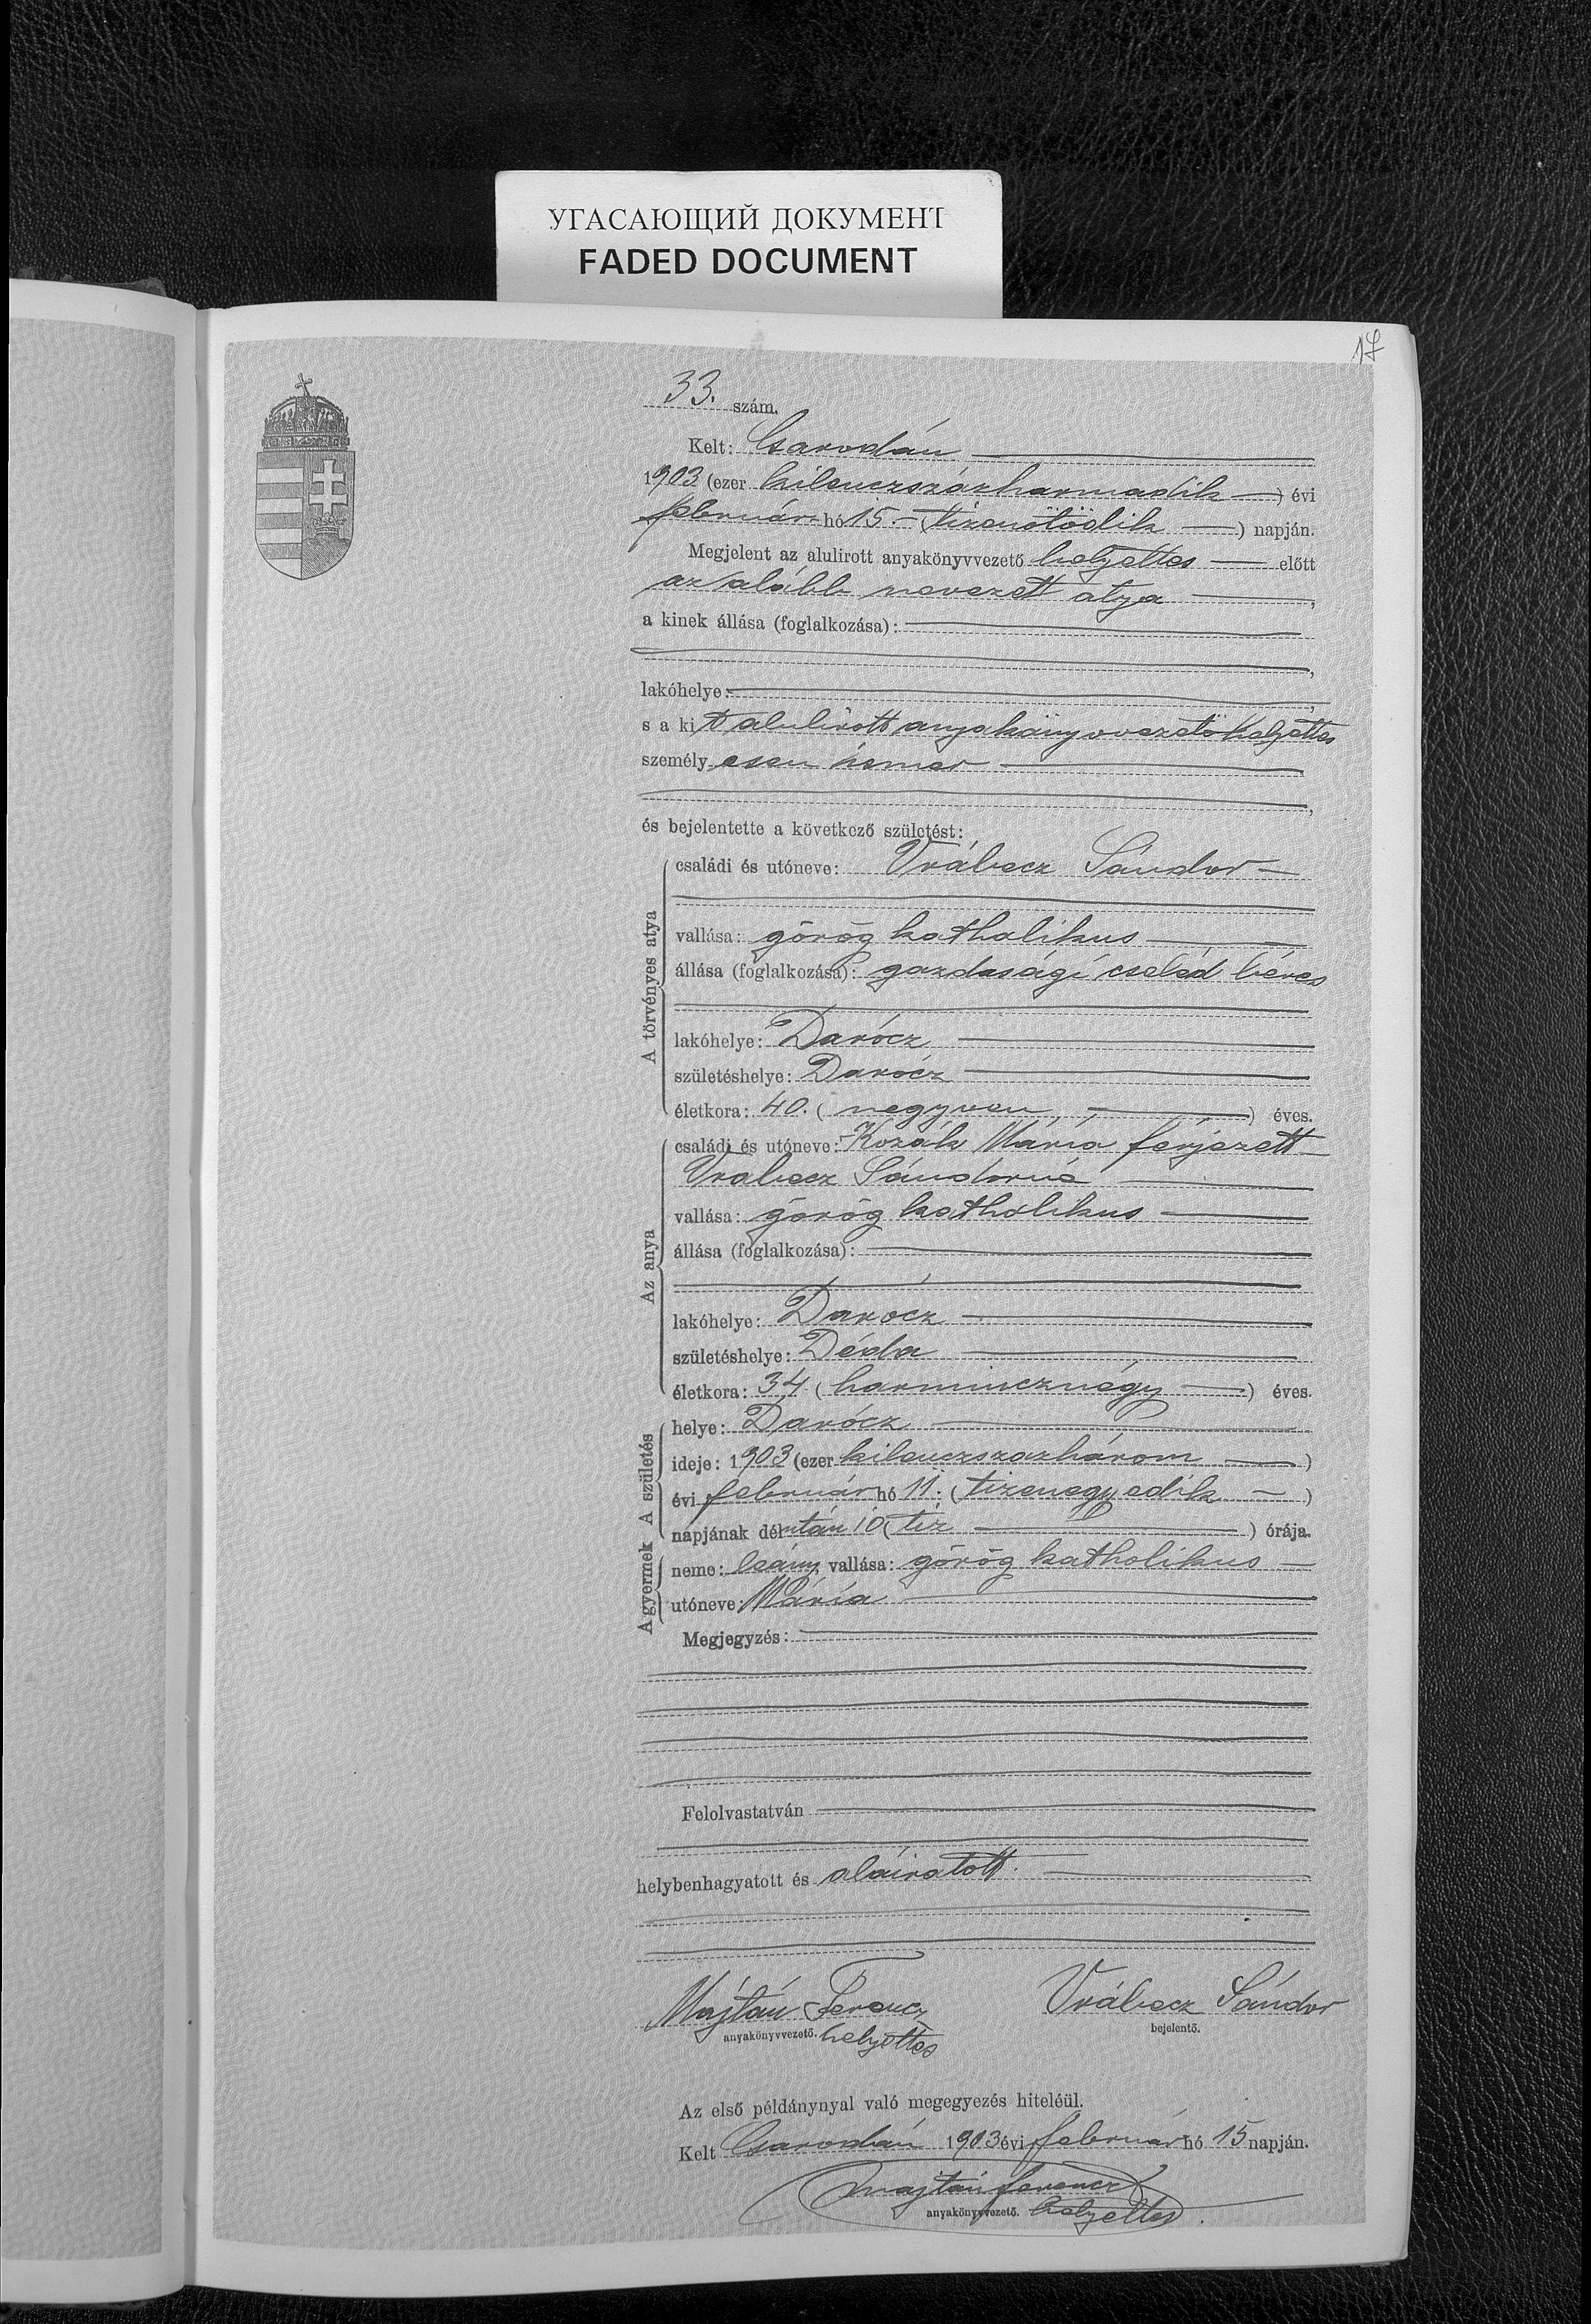 УГАСАЮЩИЙ ДОКУМЕНТ
FADED DOCUMENT
17
33. szám.
Kelt: Csarodán
1903 (ezer kilenczszázharmadik) évi
február hó 15. (tizenötödik) napján.
Megjelent az alulirott anyakönyvvezető helyettes előtt
az alább nevezett atya,
a kinek állása (foglalkozása):
lakóhelye:
s a kit alulirott anyakönyvvezető helyettes
személyesen ismer
és bejelentette a következő születést:
A törvényes atya
családi és utóneve: Vrábecz Sándor
vallása: görög katholikus
állása (foglalkozása): gazdasági cseléd béres
lakóhelye: Darócz
születéshelye: Darócz
életkora: 40. (negyven) éves.
Az anya
családi és utóneve: Kozák Mária férjezett
Vrabecz Sándorné
vallása: görög katholikus
állása (foglalkozása):
lakóhelye: Darócz
születéshelye: Déda
életkora: 34 (harmincznégy) éves.
A születés
helye: Darócz
ideje: 1903 (ezer kilenczszazhárom)
évi február hó 11. (tizenegyedik)
napjának délután 10 (tíz) órája.
A gyermek
neme: leány, vallása: görög katholikus
utóneve: Mária
Megjegyzés:
Felolvastatván
helybenhagyatott és aláiratott.
Majtán Ferencz Vrábecz Sándor
anyakönyvvezető. helyettes bejelentő.
Az első példánynyal való megegyezés hiteléül.
Kelt Csarodán 1903 évi február hó 15 napján.
Majtán Ferencz
anyakönyvvezető. helyettes